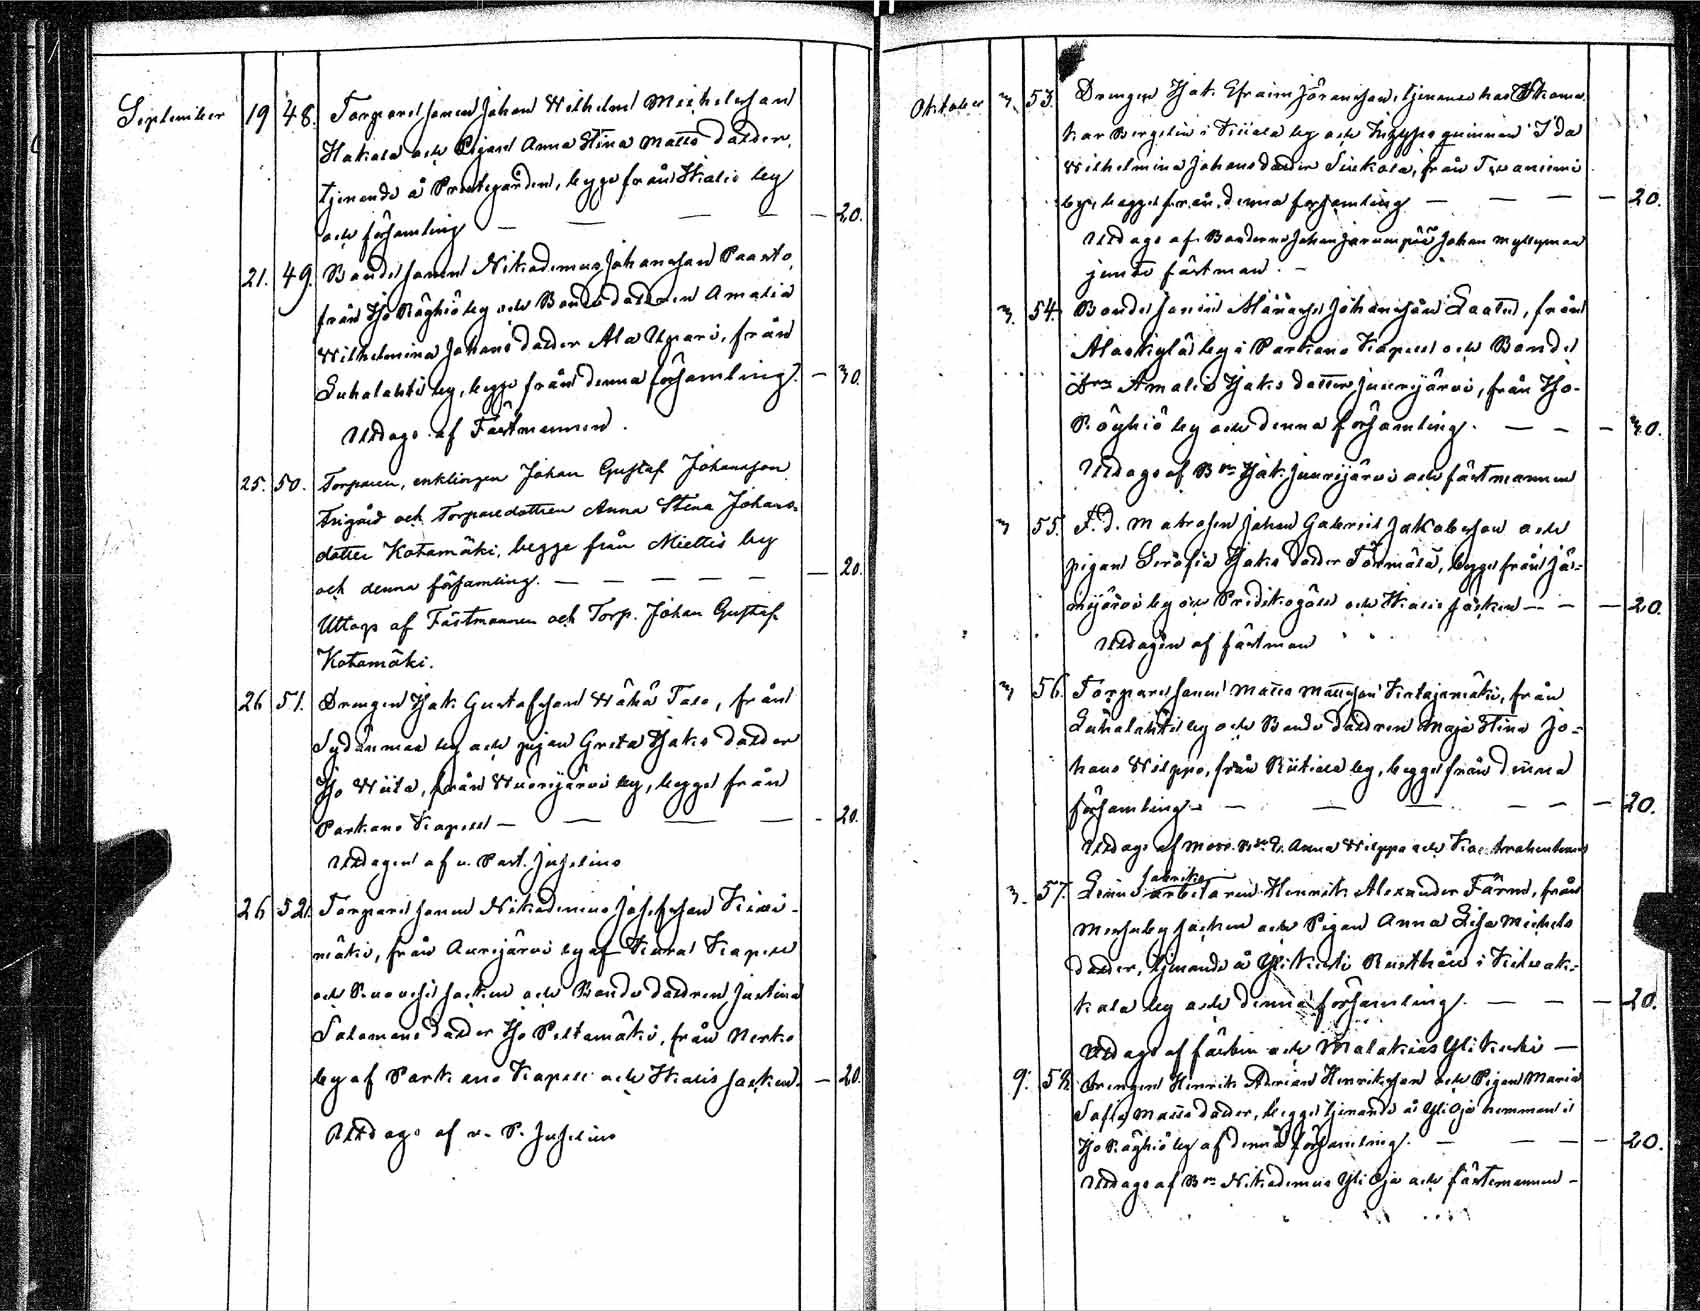 September 19 48. Torparesonen Johan Wilhelm Michelsson
Hakola och Pigan Anna Stina Matts dotter,
tjenande å Prestegården, begge från Ikalis by
och församling — — — — 20.
21. 49. Bondesonen Nikodemus Johansson Paasto,
från Hjo Röyhiö by och Bondedottren Amalia
Wilhelmina Johans dotter Ala Upari, från
Luhalahti by, begge från denna församling. — 30.
Uttogs af Fästmannen.
25. 50. Torparen, enklingen Johan Gustaf Johansson
Frigård och Torparedottren Anna Stina Johans-
dotter Kotamäki, begge från Miettis by
och denna församling. — — — — — — 20.
Uttogs af Fästmannen och Torp. Johan Gustaf
Kotamäki.
26 51. Drengen Hjak Gustafsson Wähä Talo, från
Sydänmaa by och pigan Greta Hjaks dotter
Hjo Wiita, från Wuorijärvi by, begge från
Parkano Kapell — — — — — 20.
Uttagen af v. Past. Juselius
26 52. Torparesonen Nikodemus Josefsson Kivi-
mäki, från Aurejärvi by af Kuru Kapell
och Ruovesi socken och Bonde dottren Justina
Salomons dotter Hjo Peltomäki, från Nerko
by af Parkano Kapell och Ikalis socken. — 20.
Uttogs af v. P. Juselius
Oktober 3. 53. Drengen Hjak. Efraim Jöransson, tjenande hos Skoma-
kar Bergelin i by och qvinnan Ida
Wilhelmina Johansdotter Sinkola, från
by, begge från denna församling — — — — 20.
Uttogs af Bonderne Johan Johan Myllymaa
jemte fästman. —
3. 54. Bonde sonen Johansson Laaten, från
Alaskylä by i Parkano Kapell och Bonde
Amalia Hjaks dotter Juurijärvi, från Hjo-
Röyhiö by och denna församling. — — — 30.
Uttogs af Bn Hjak. Juurijärvi och fästmannen
3 55. F. d. Matrosen Johan Gabriel Jakobsson och
pigan Serafia Hjaks dotter Törmälä, begge från Jä-
mijärvi by och Predikogäll och Ikalis socken — — — 20.
Uttagen af fästman
3 56. Torparesonen Matts Mattsson Katajamäki, från
Luhalahti by och Bonde dottren Maja Stina Jo-
hans Wilppo, från Riitiala by, begge från denna
församling — — — — — — 20.
Uttogs af Anna Wilppo och
fabriks
3. 57. arbetaren Henrik Alexander Färm, från
Mouhe by socken och Pigan Anna Lisa Michels
dotter, tjenande å Yli Kuti Rusthåll i Kilvak-
kala by och denna församling. — — — 20.
Uttogs af fästm och Malakias Yli Kuti —
9. 58. Drengen Henrik Adrian Henriksson och Pigan Maria
Sofia Matts dotter, begge tjenande å Yli Oja hemman i
Hjo Röyhiö by af denna församling. — — — — 20.
Uttogs af Bn Nikodemus Yli Oja och fästemannen —